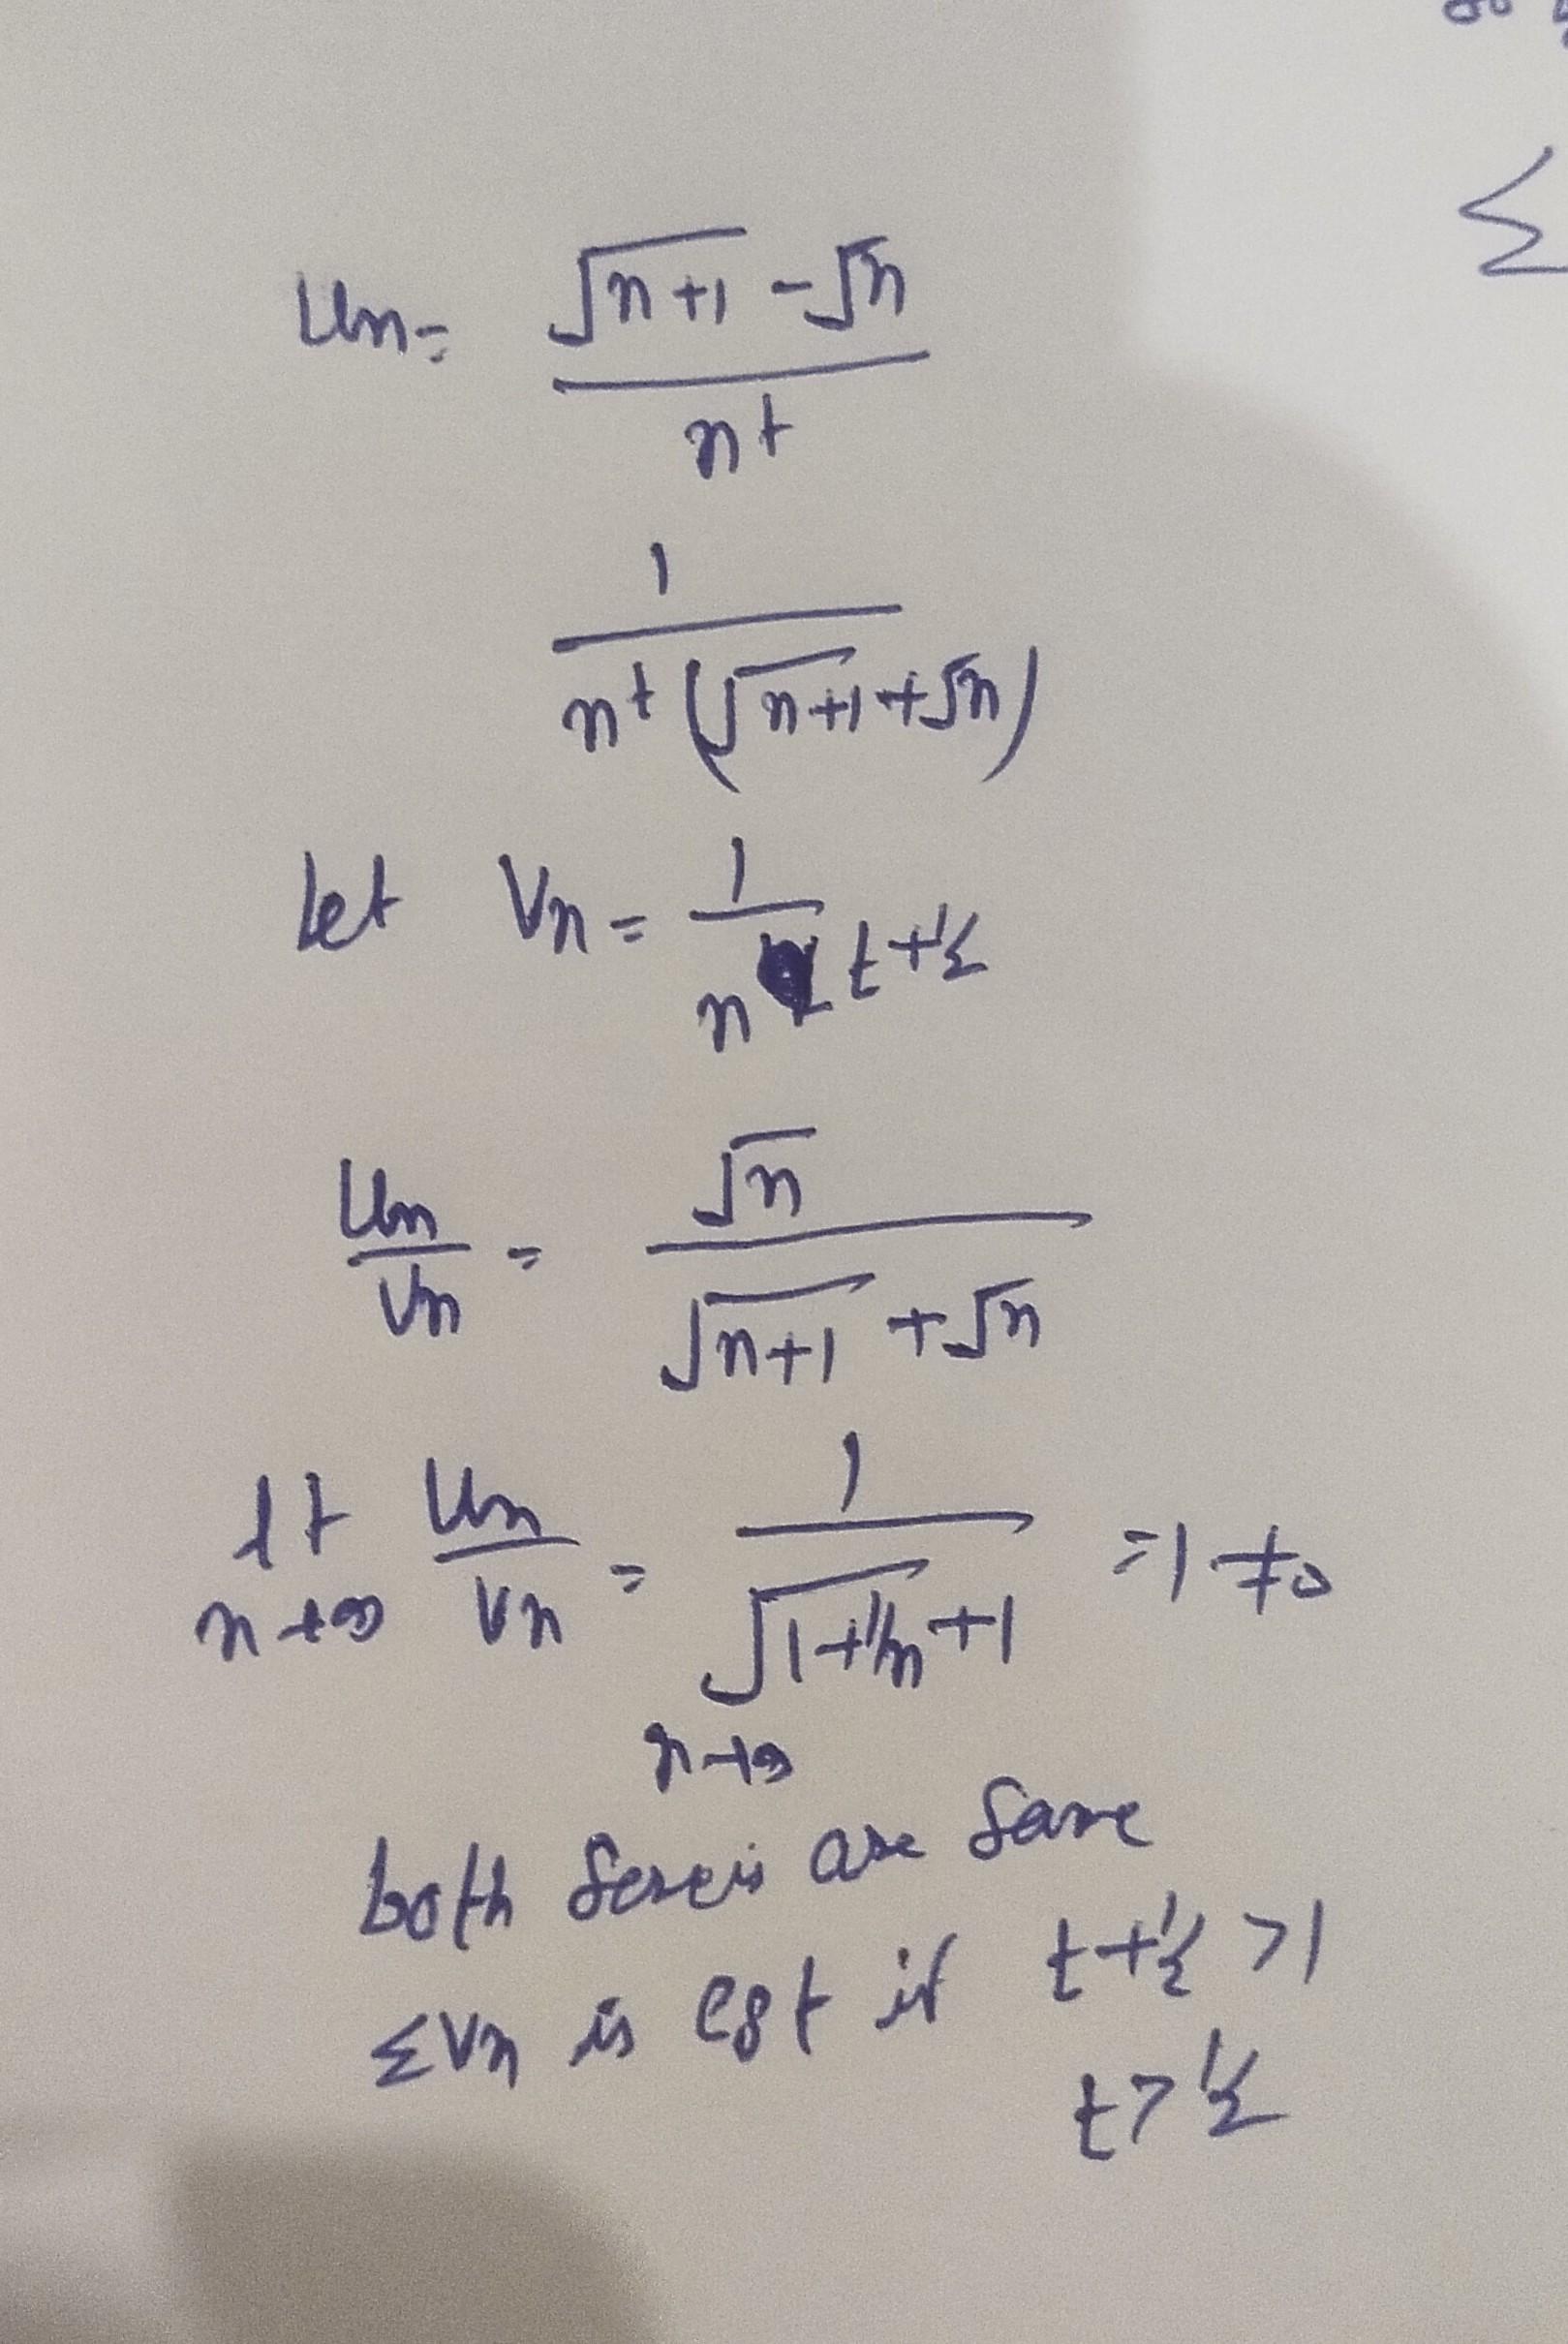 Σ
Un = √n+1 - √n / n^t
1 / n^t (√n+1 + √n)
let Vn = 1 / n^t+1/2
Un / Vn = √n / √n+1 + √n
lt n→∞ Un / Vn = 1 / √1+1/n + 1 = 1 ≠ 0
n→∞
both sereis are same
ΣVn is cgt if t+1/2 >1
t > 1/2